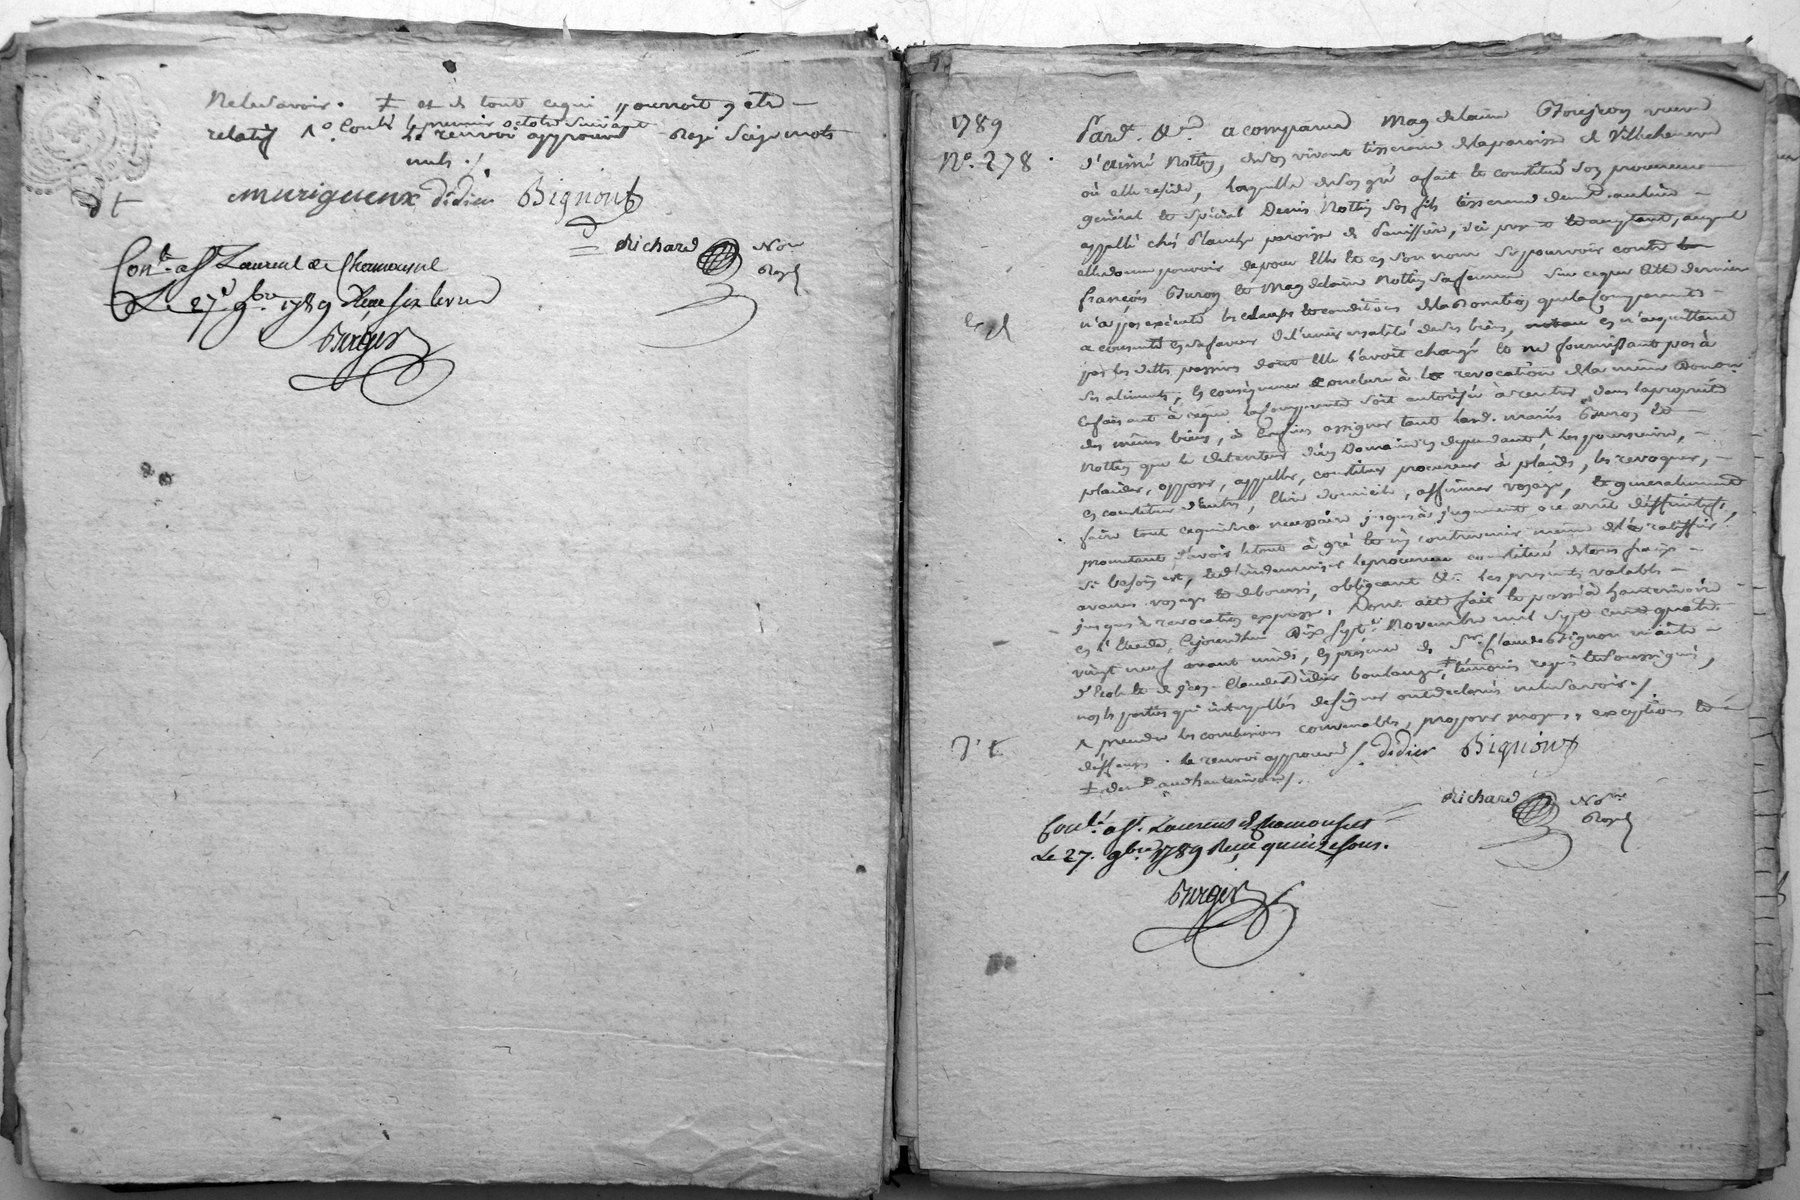 Nele Savoir. ‡ et de tout cequi pourroit y etre
relatif
le premier octobre suivant
le renvoi approuvé Rayé Seize mots
nuls ./
murigneux didier Bignon
Richard Nore
Royal
Conlé. a St Laurent de Chamousset
Le 27e 9bre 1789 Reçu six livres
Berger
1789
No. 278
Pardt. &a a comparu Magdelaine veuve
d'aimé Nottin, de Son vivant tisserand de la paroisse de Villechenève
où elle reside, laquelle de Son gré a fait et constitué Son procureur
général et spécial Denis Nottin Son fils tisserand demt. au lieu
appellé chés Planche paroisse de Panissière, d'ici pnt et acceptant, auquel
elle donne pouvoir de pour Elle et en Son nom Se pourvoir contre
françois et Magdelaine Nottin Sa femme Sur ceque Cette dernière
n'a pas exécuté les clauses et conditions de la Donation que la Comparante
a consenti en Sa faveur de l'universalité de Ses biens, en n'acquittant
pas les dettes passives dont Elle l'avoit chargé et ne fournissant pas à
Ses aliments, En conséquence Conclure à la revocation de la même Donaon
Ce faisant à ceque la Comparante soit autorisée à rentrer dans la propriété
des mêmes biens, à Ces fins assigner tant lesd. mariés et
Nottin que le detenteur d'un Domaine en dependant, les poursuivre,
plaider, opposer, appeller, constituer procureur à plaids, les revoquer,
en constituer d'autres, Elire domicile, affirmer voyage, et generalement
faire tout cequi Sera necessaire jusques à jugement ou arrêt deffinitif,
promettant d'avoir le tout à gré et n'y contrevenir même de le ratiffier
Si besoin est, et d'indemniser le procureur constitué de tous frais
avances voyages et deboursé, obligeant &a. les presentes valables
jusques à revocation expresse. Dont acte fait et passé à hauterivoire
en l'Etude, Cejourdhui Dix Sept Novembre mil Sept Cent quatre
vingt neuf avant midi, En présence de Sr. Claude Bignon maitre
d'Ecole et de Claude Didier boulanger, ‡ témoins requis et Soussignés,
non les parties qui interpellées de signer ont declarés ne le Savoir ./
prendre les conclusions convenables, proposer moyens, exceptions et
deffenses. le renvoi approuvé ./. didier Bignon
‡ demt. aud hauterivoire ./.
Richard Nore
Royal
Conlé. a St. Laurens de Chamousset
Le 27. 9bre 1789 Reçu quinze sous.
Berger